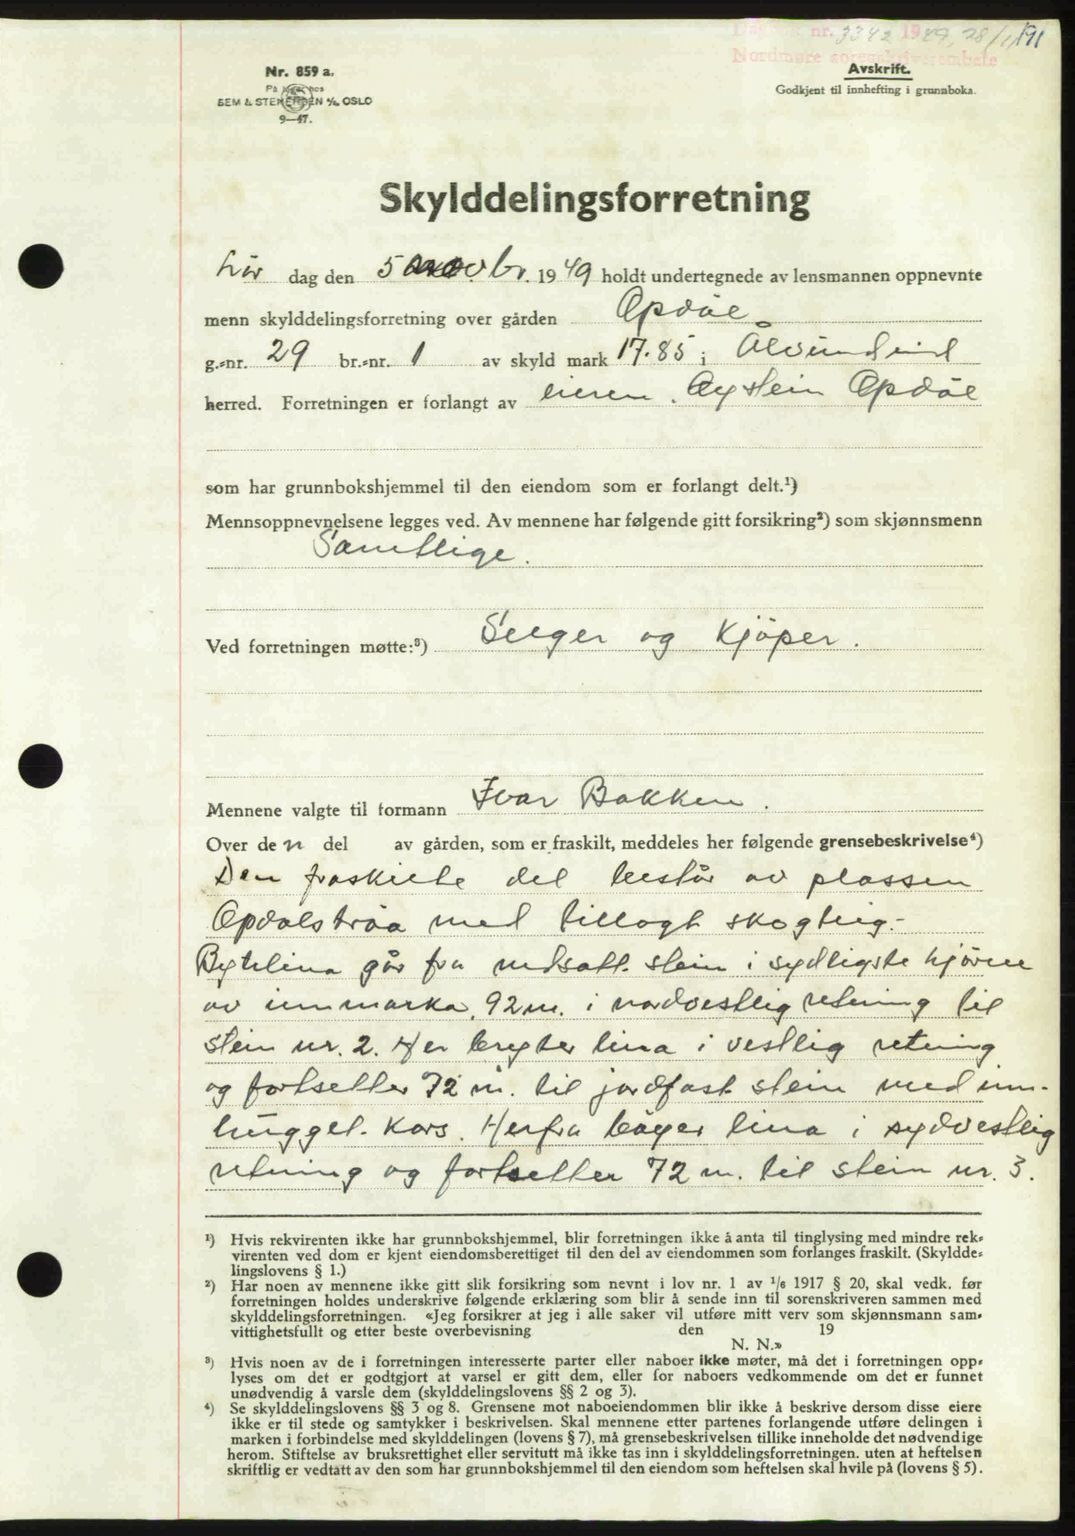 Dagbok nr. 3342 1949, 28/11 191
Nordmøre sorenskriverembete
Nr. 859 a.
På lager hos
SEM & STENERSEN A/S, OSLO
9—47.
Avskrift.
Godkjent til innhefting i grunnboka.
Skylddelingsforretning
Lør dag den 5 novbr. 1949 holdt undertegnede av lensmannen oppnevnte
menn skylddelingsforretning over gården Opdøl
g.-nr. 29 br.-nr. 1 av skyld mark 17.85 i Ålvundeid
herred. Forretningen er forlangt av eieren. Øystein Opdøl
som har grunnbokshjemmel til den eiendom som er forlangt delt.¹)
Mennsoppnevnelsene legges ved. Av mennene har følgende gitt forsikring²) som skjønnsmenn
Samtlige.
Ved forretningen møtte:³) Selger og Kjöper.
Mennene valgte til formann Ivar Bakken.
Over den del av gården, som er fraskilt, meddeles her følgende grensebeskrivelse⁴)
Den fraskilte del består av plassen
Opdalstrøa med tillagt skogteig.-
Bytelina går fra nedsatt stein i sydligste hjörne
av innmarka, 92 m. i nordvestlig retning til
stein nr. 2. Her bryter lina i vestlig retning
og fortsetter 72 m. til jordfast stein med inn-
hugget kors. Herfra böyer lina i sydvestlig
retning og fortsetter 72 m. til stein nr. 3.
¹) Hvis rekvirenten ikke har grunnbokshjemmel, blir forretningen ikke å anta til tinglysing med mindre rek-
virenten ved dom er kjent eiendomsberettiget til den del av eiendommen som forlanges fraskilt. (Skyldde-
lingslovens § 1.)
²) Har noen av mennene ikke gitt slik forsikring som nevnt i lov nr. 1 av 1/6 1917 § 20, skal vedk. før
forretningen holdes underskrive følgende erklæring som blir å sende inn til sorenskriveren sammen med
skylddelingsforretningen. «Jeg forsikrer at jeg i alle saker vil utføre mitt verv som skjønnsmann sam-
vittighetsfullt og etter beste overbevisning den 19
N. N.»
³) Hvis noen av de i forretningen interesserte parter eller naboer ikke møter, må det i forretningen opp-
lyses om det er godtgjort at varsel er gitt dem, eller for naboers vedkommende om det er funnet
unødvendig å varsle dem (skylddelingslovens §§ 2 og 3).
⁴) Se skylddelingslovens §§ 3 og 8. Grensene mot naboeiendommen blir ikke å beskrive dersom disse eiere
ikke er til stede og samtykker i beskrivelsen. Skal mennene etter partenes forlangende utføre delingen i
marken i forbindelse med skylddelingen (lovens § 7), må grensebeskrivelsen tillike inneholde det nødvendige
herom. Stiftelse av bruksrettighet eller servitutt må ikke tas inn i skylddelingsforretningen. uten at heftelsen
skriftlig er vedtatt av den som har grunnbokshjemmel til den eiendom som heftelsen skal hvile på (lovens § 5).